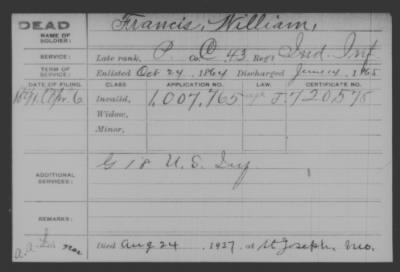 DEAD
Francis, William,
NAME OF SOLDIER:
SERVICE: Late rank, P Co. C, 43 Reg't Ind. Inf
TERM OF SERVICE: Enlisted Oct 24, 1864 Discharged June 14, 1865
DATE OF FILING. CLASS APPLICATION NO. LAW. CERTIFICATE NO.
1891 Apr. 6 Invalid, 1,007,765 J. 720,575
Widow,
Minor,
ADDITIONAL SERVICES: G 18 U.S. Inf
REMARKS:
Died Aug 24, 1927, at St Joseph, Mo.